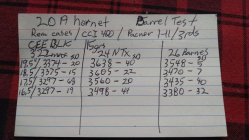 20 A hornet Barrel Test
Rem cases / CCI 400 / Pacnor 1-11/3rds
CFE BLK 15 grs
322 24 NTX 26 Barnes
19.5/3374-20 3638-40 3548-5
18.5/3375-15 3605-22 3470-7
17.5/3297-48 3560-20 3435-40
16.5/3297-19 3498-44 3380-32